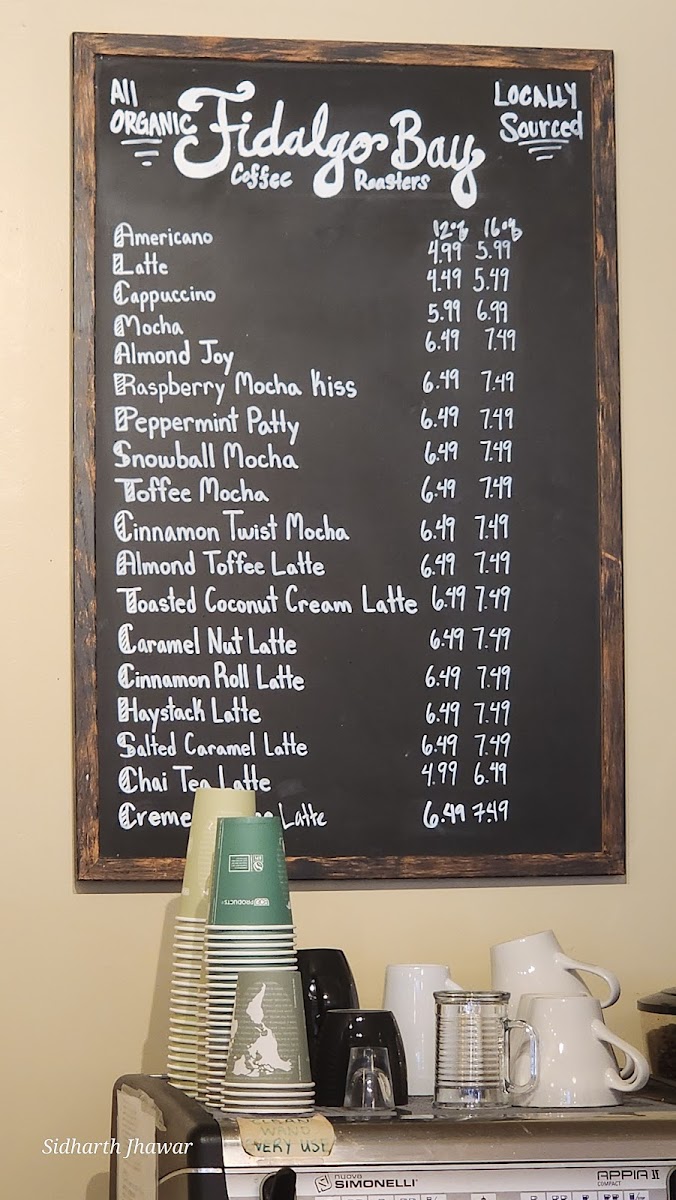 All ORGANIC
Fidalgo Bay
Coffee Roasters
LOCALLY Sourced
12oz 16oz
Americano
Latte 4.99 5.99
Cappuccino 4.49 5.49
Mocha 5.99 6.99
Almond Joy 6.49 7.49
Raspberry Mocha Kiss 6.49 7.49
Peppermint Patty 6.49 7.49
Snowball Mocha 6.49 7.49
Toffee Mocha 6.49 7.49
Cinnamon Twist Mocha 6.49 7.49
Almond Toffee Latte 6.49 7.49
Toasted Coconut Cream Latte 6.49 7.49
Caramel Nut Latte 6.49 7.49
Cinnamon Roll Latte 6.49 7.49
Haystack Latte 6.49 7.49
Salted Caramel Latte 6.49 7.49
Chai Tea Latte 4.99 6.49
Creme Latte 6.49 7.49
PRODUCTS
VERY USE
nuova
SIMONELLI
APPIA II
COMPACT
Sidharth Jhawar